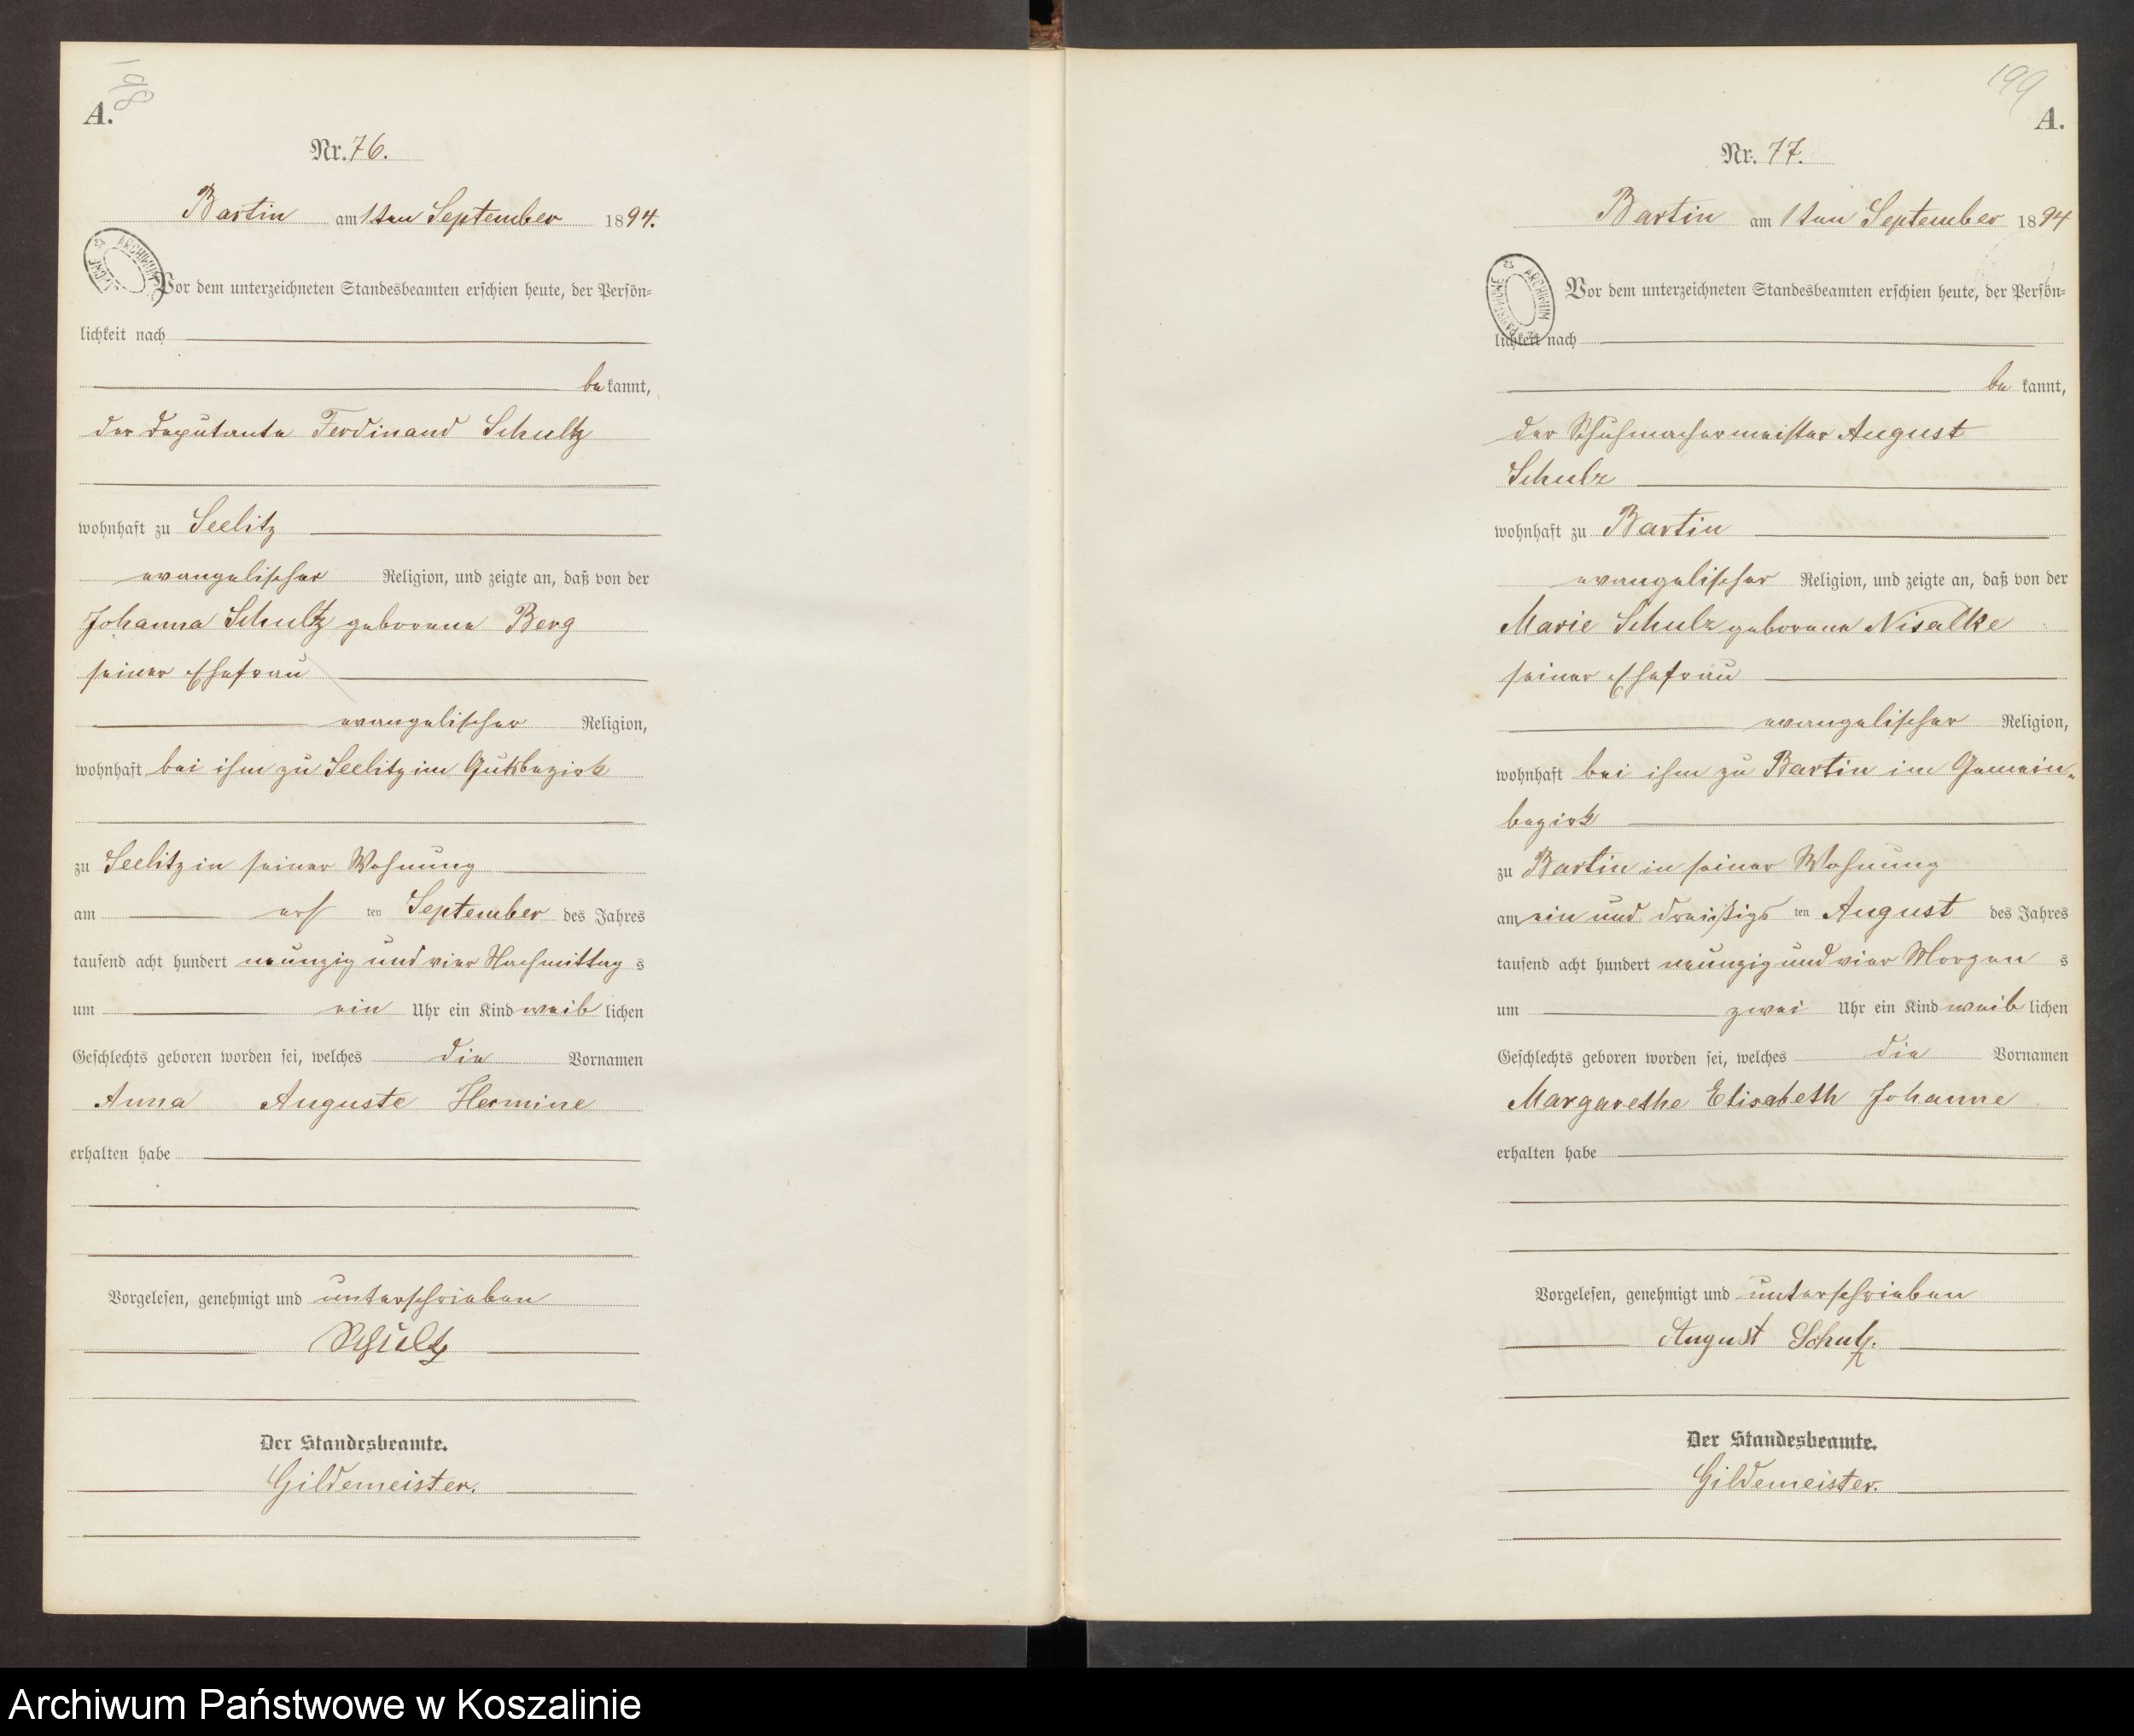 198
A.
Nr. 76.
Bartin am 1ten September 1894.
Vor dem unterzeichneten Standesbeamten erschien heute, der Persön=
lichkeit nach
bekannt,
der Deputante Ferdinand Schultz
wohnhaft zu Seelitz
evangelischer Religion, und zeigte an, daß von der
Johanna Schultz geborene Berg
seiner Ehefrau
evangelischer Religion,
wohnhaft bei ihm zu Seelitz im Gutsbezirk
zu Seelitz in seiner Wohnung
am ersten September des Jahres
tausend acht hundert neunzig und vier Nachmittags
um ein Uhr ein Kind weiblichen
Geschlechts geboren worden sei, welches die Vornamen
Anna Auguste Hermine
erhalten habe
Vorgelesen, genehmigt und unterschrieben
Schultz
Der Standesbeamte.
Gildemeister.
199
A.
Nr. 77.
Bartin am 1ten September 1894
ARCHIWUM
Vor dem unterzeichneten Standesbeamten erschien heute, der Persön=
lichkeit nach
bekannt,
der Schuhmachermeister August
Schulz
wohnhaft zu Bartin
evangelischer Religion, und zeigte an, daß von der
Marie Schulz geborene Nisalke
seiner Ehefrau
evangelischer Religion,
wohnhaft bei ihm zu Bartin im Gemein-
bezirk
zu Bartin in seiner Wohnung
am ein und dreißigsten August des Jahres
tausend acht hundert neunzig und vier Morgens
um zwei Uhr ein Kind weiblichen
Geschlechts geboren worden sei, welches die Vornamen
Margarethe Elisabeth Johanne
erhalten habe
Vorgelesen, genehmigt und unterschrieben
August Schulz.
Der Standesbeamte.
Gildemeister.
Archiwum Państwowe w Koszalinie